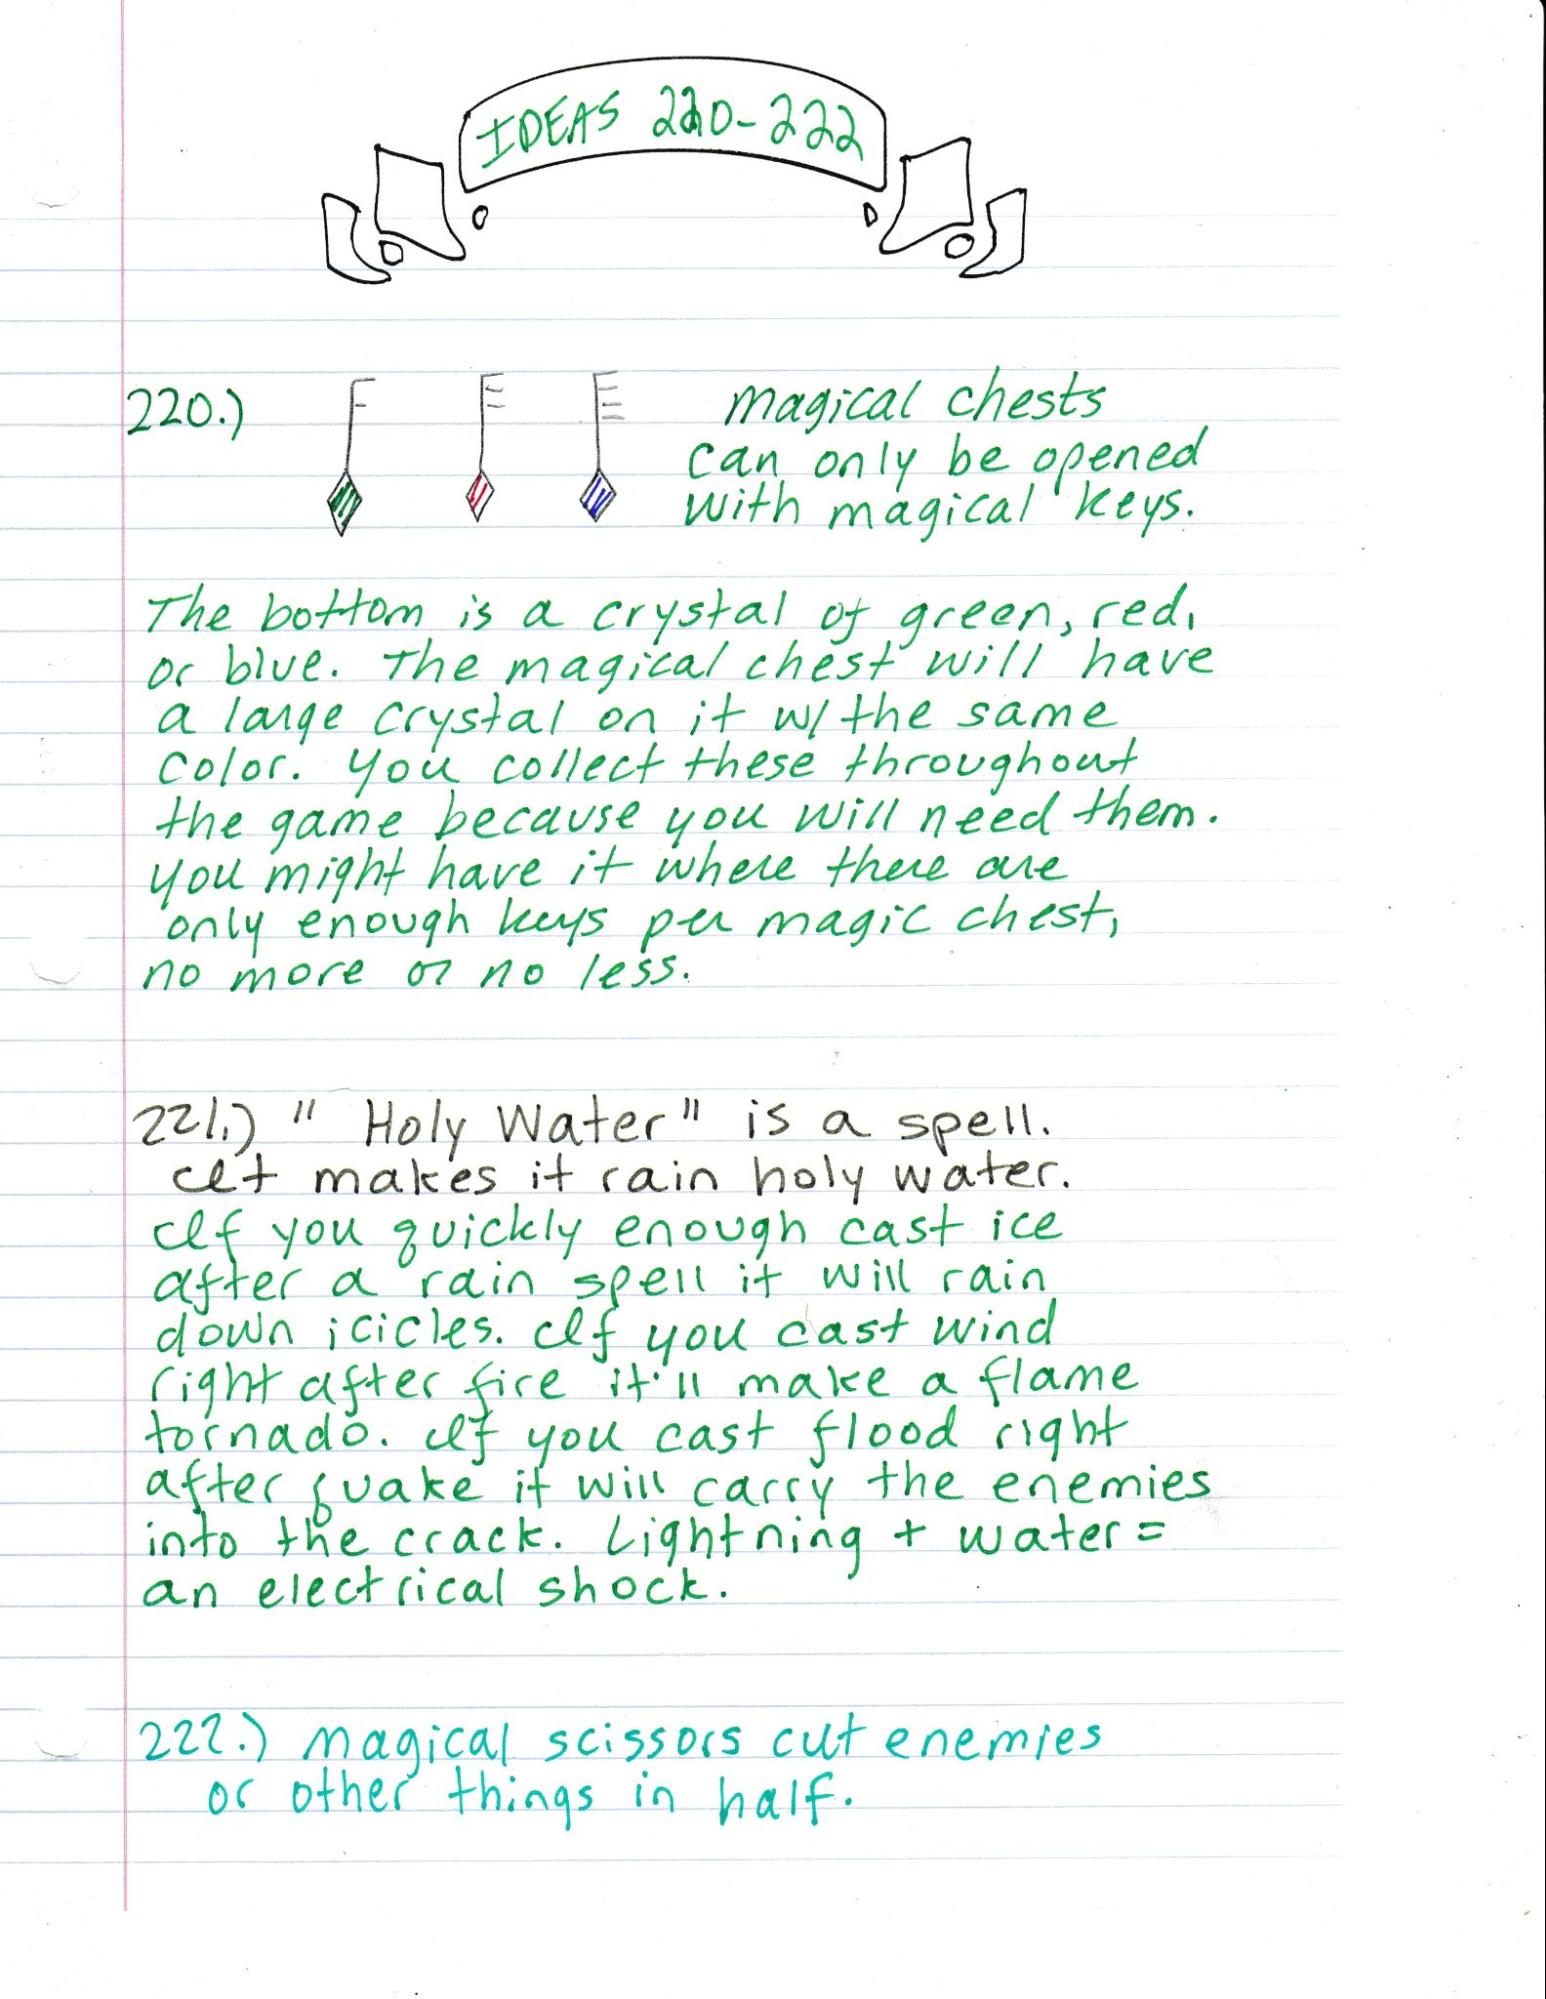 IDEAS 220-222
220.) Magical chests
can only be opened
with magical keys.
The bottom is a crystal of green, red,
or blue. The magical chest will have
a large crystal on it w/ the same
color. You collect these throughout
the game because you will need them.
You might have it where there are
only enough keys per magic chest,
no more or no less.
221.) "Holy Water" is a spell.
It makes it rain holy water.
If you quickly enough cast ice
after a rain spell it will rain
down icicles. If you cast wind
right after fire it'll make a flame
tornado. If you cast flood right
after quake it will carry the enemies
into the crack. Lightning + water =
an electrical shock.
222.) Magical scissors cut enemies
or other things in half.